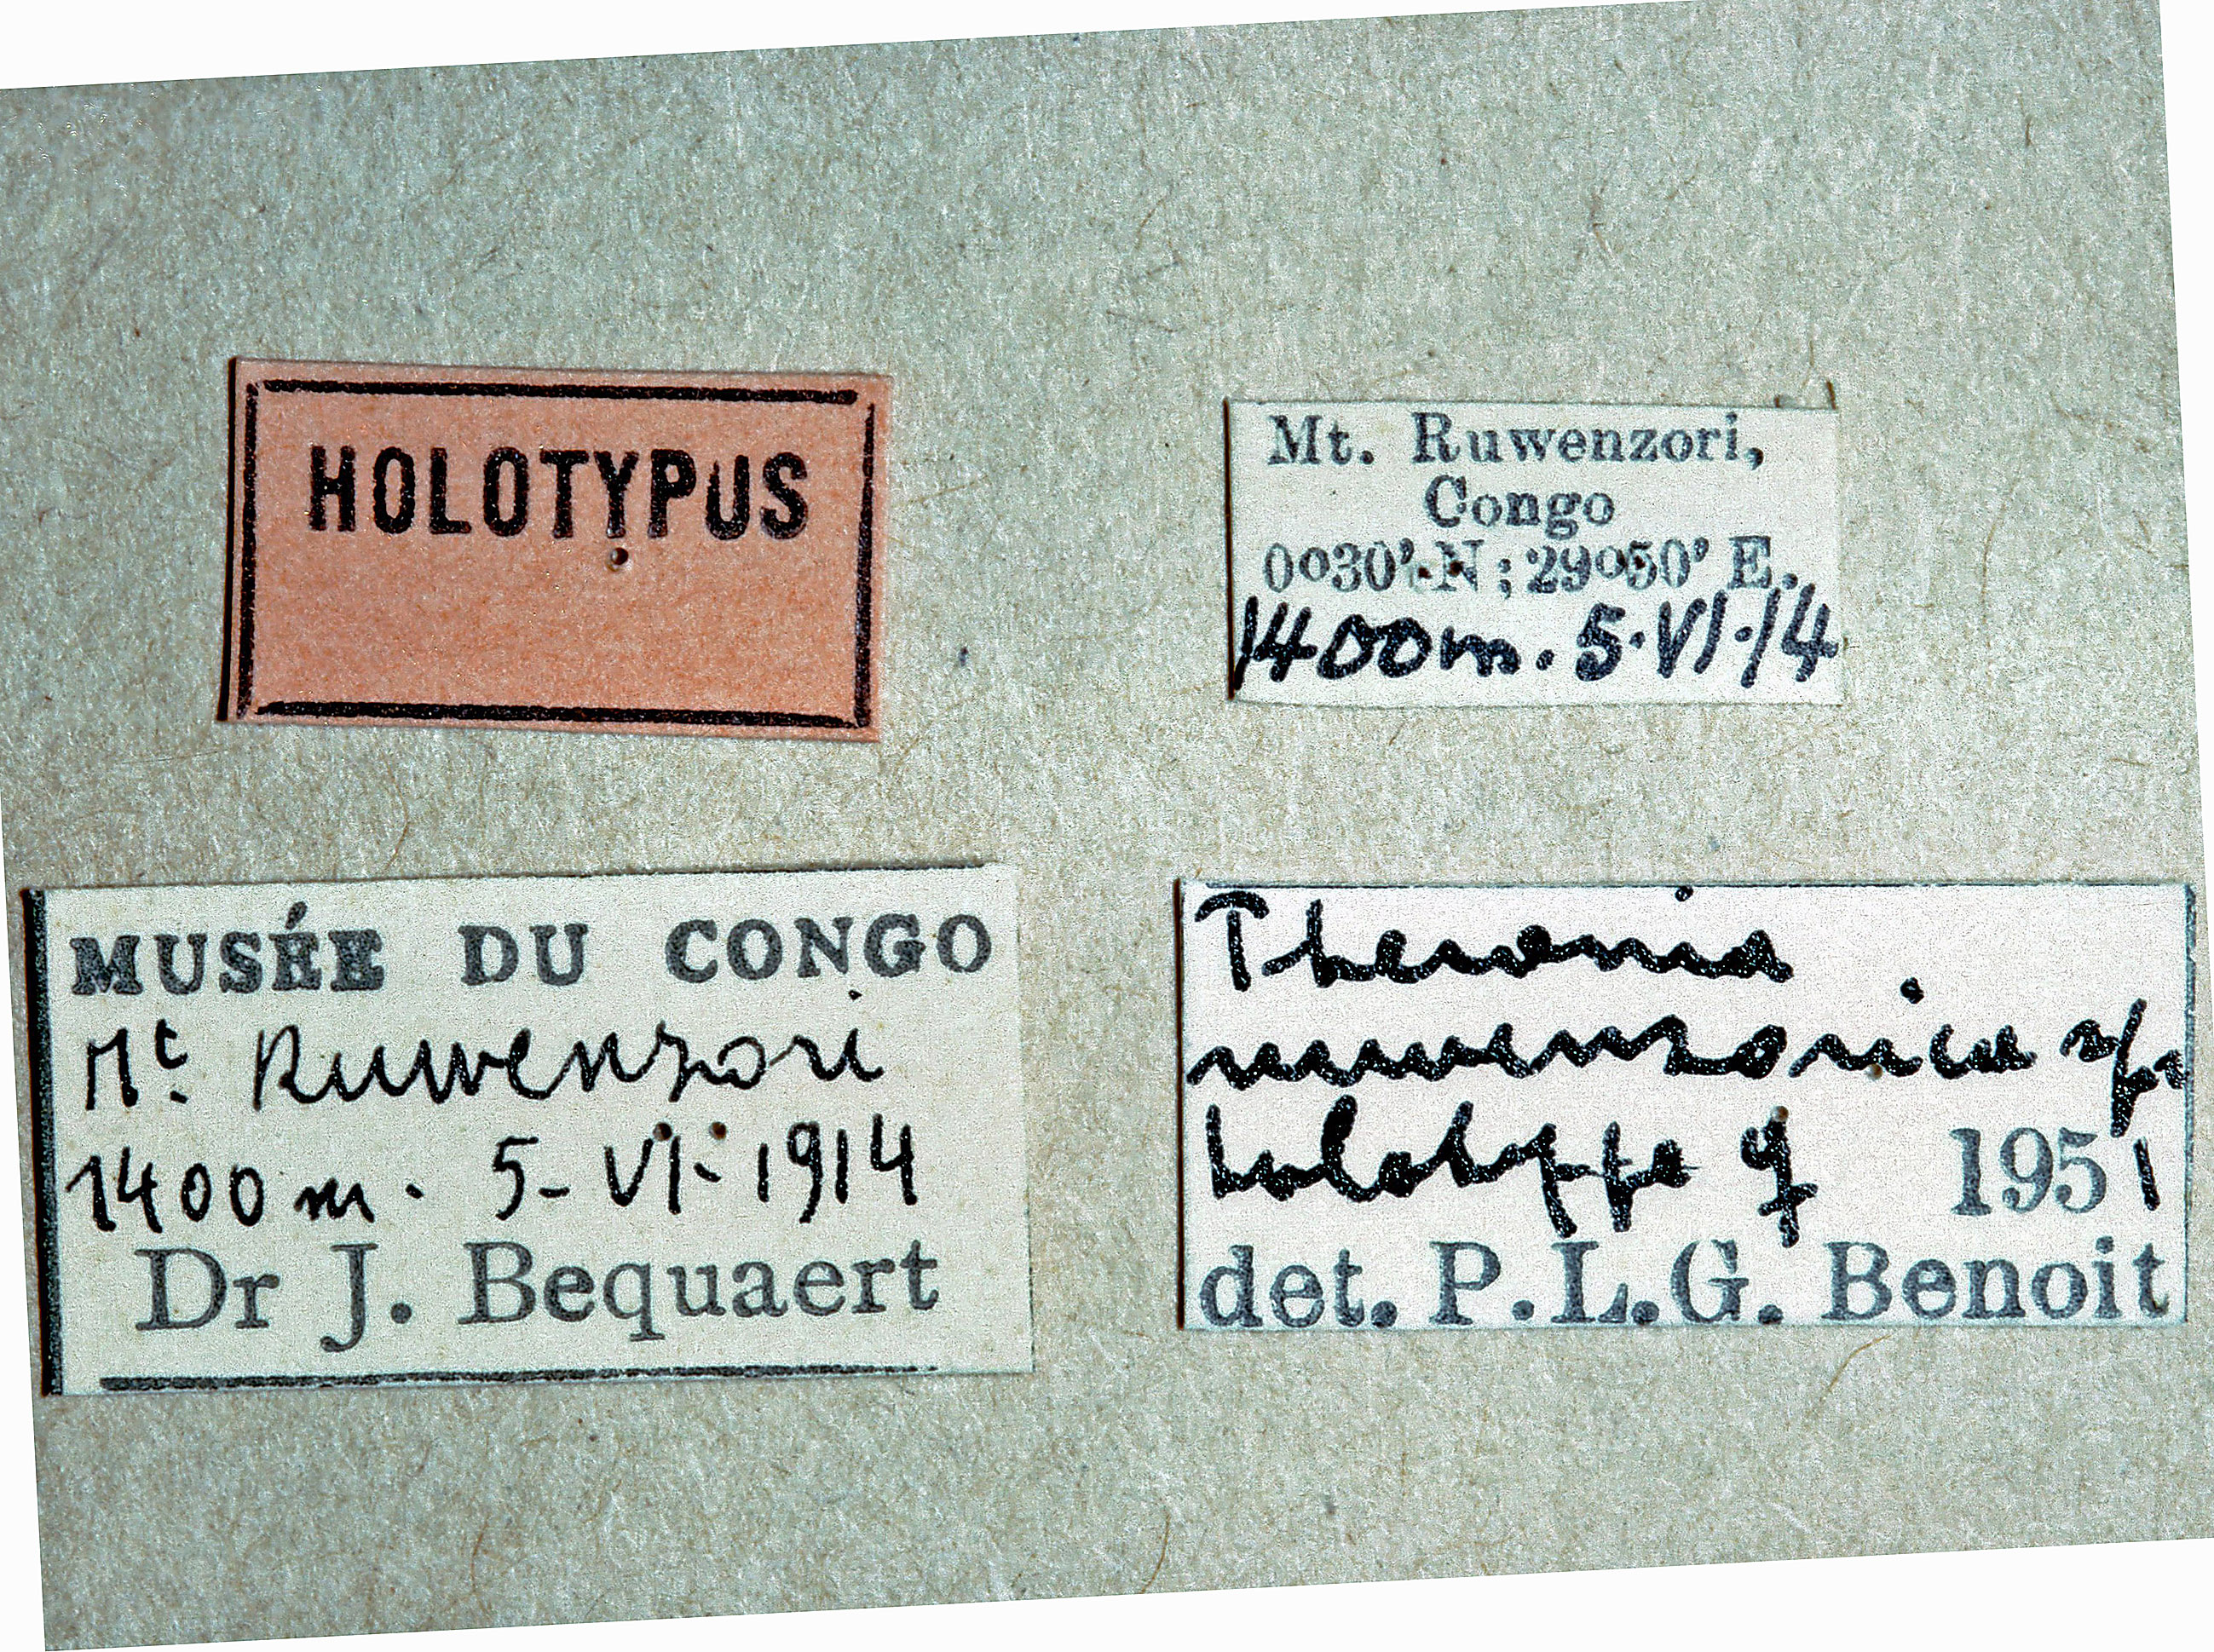 HOLOTYPUS
Mt. Ruwenzori,
Congo
0o30' N; 29o50' E.
1400m. 5·VI·14
MUSÉE DU CONGO
Mt Ruwenzori
1400m. 5-VI-1914
Dr J. Bequaert
Theronia
ruwenzorica
holotype 1951
det. P.L.G. Benoit